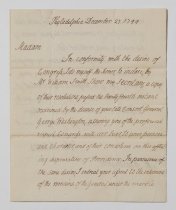 Philadelphia December 27. 1799
Madam
In conformity with the desire of
Congress I do myself the honor to inclose, by
Mr. William Smith Shaw my Secretary a copy
of their resolutions passed the twenty fourth instant
occasioned by the decease of your late Consort General
George Washington, assuring you of the profound
respect Congress will ever bear to your person
and character, and of their condolence on this
afflicting dispensation of Providence. In pursuance of
the same desire I entreat your assent to the interment
of the remains of the General under the marble